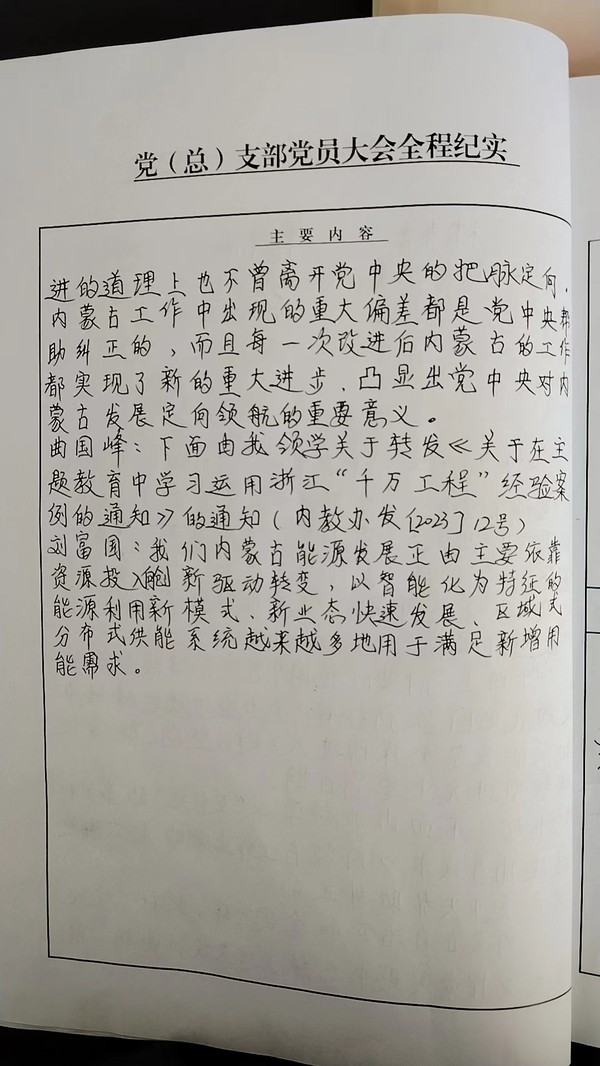 党（总）支部党员大会全程纪实
主要内容
进的道理上也不曾离开党中央的把脉定向，
内蒙古工作中出现的重大偏差都是党中央帮
助纠正的，而且每一次改进后内蒙古的工作
都实现了新的重大进步、凸显出党中央对内
蒙古发展定向领航的重要意义。
曲国峰：下面由我领学关于转发《关于在主
题教育中学习运用浙江“千万工程”经验案
例的通知》的通知（内教办发〔2023〕12号）
刘富国：我们内蒙古能源发展正由主要依靠
资源投入向创新驱动转变，以智能化为特征的
能源利用新模式、新业态快速发展、区域式
分布式供能系统越来越多地用于满足新增用
能需求。